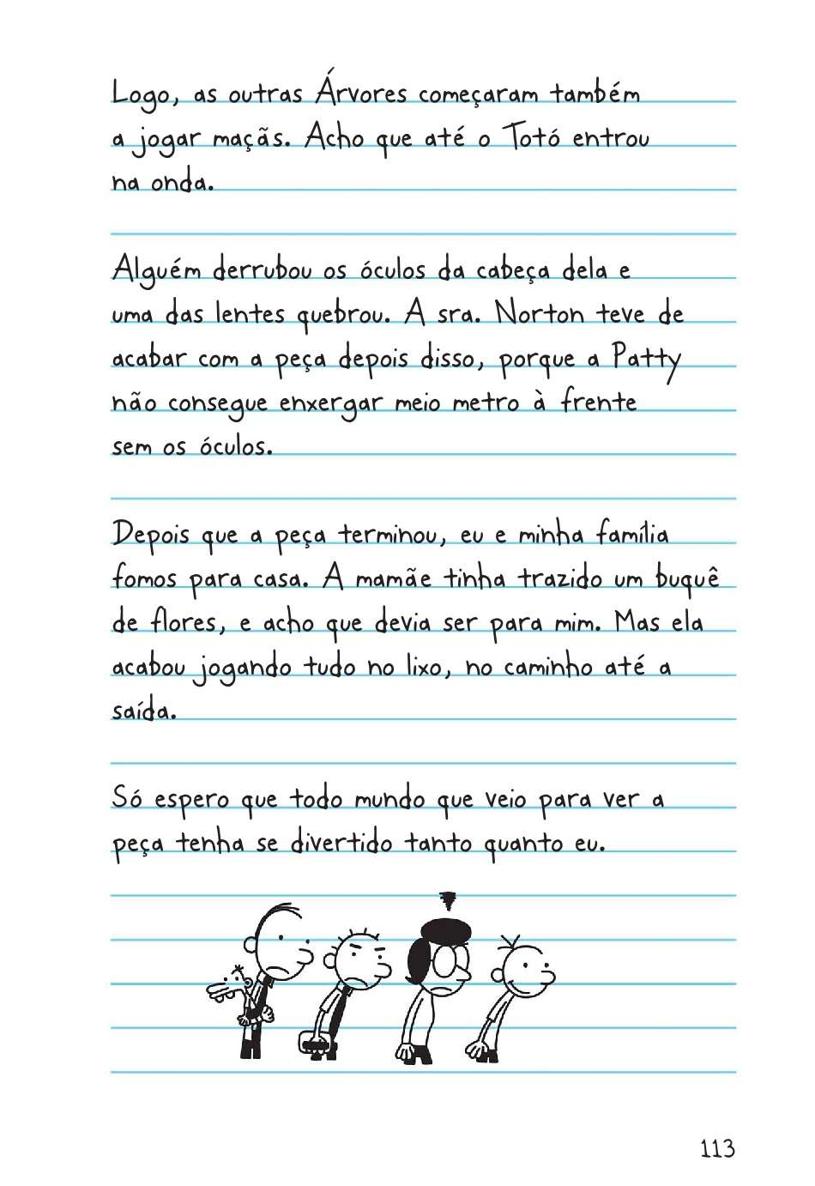 Logo, as outras Árvores começaram também
a jogar maçãs. Acho que até o Totó entrou
na onda.
Alguém derrubou os óculos da cabeça dela e
uma das lentes quebrou. A sra. Norton teve de
acabar com a peça depois disso, porque a Patty
não consegue enxergar meio metro à frente
sem os óculos.
Depois que a peça terminou, eu e minha família
fomos para casa. A mamãe tinha trazido um buquê
de flores, e acho que devia ser para mim. Mas ela
acabou jogando tudo no lixo, no caminho até a
saída.
Só espero que todo mundo que veio para ver a
peça tenha se divertido tanto quanto eu.
113